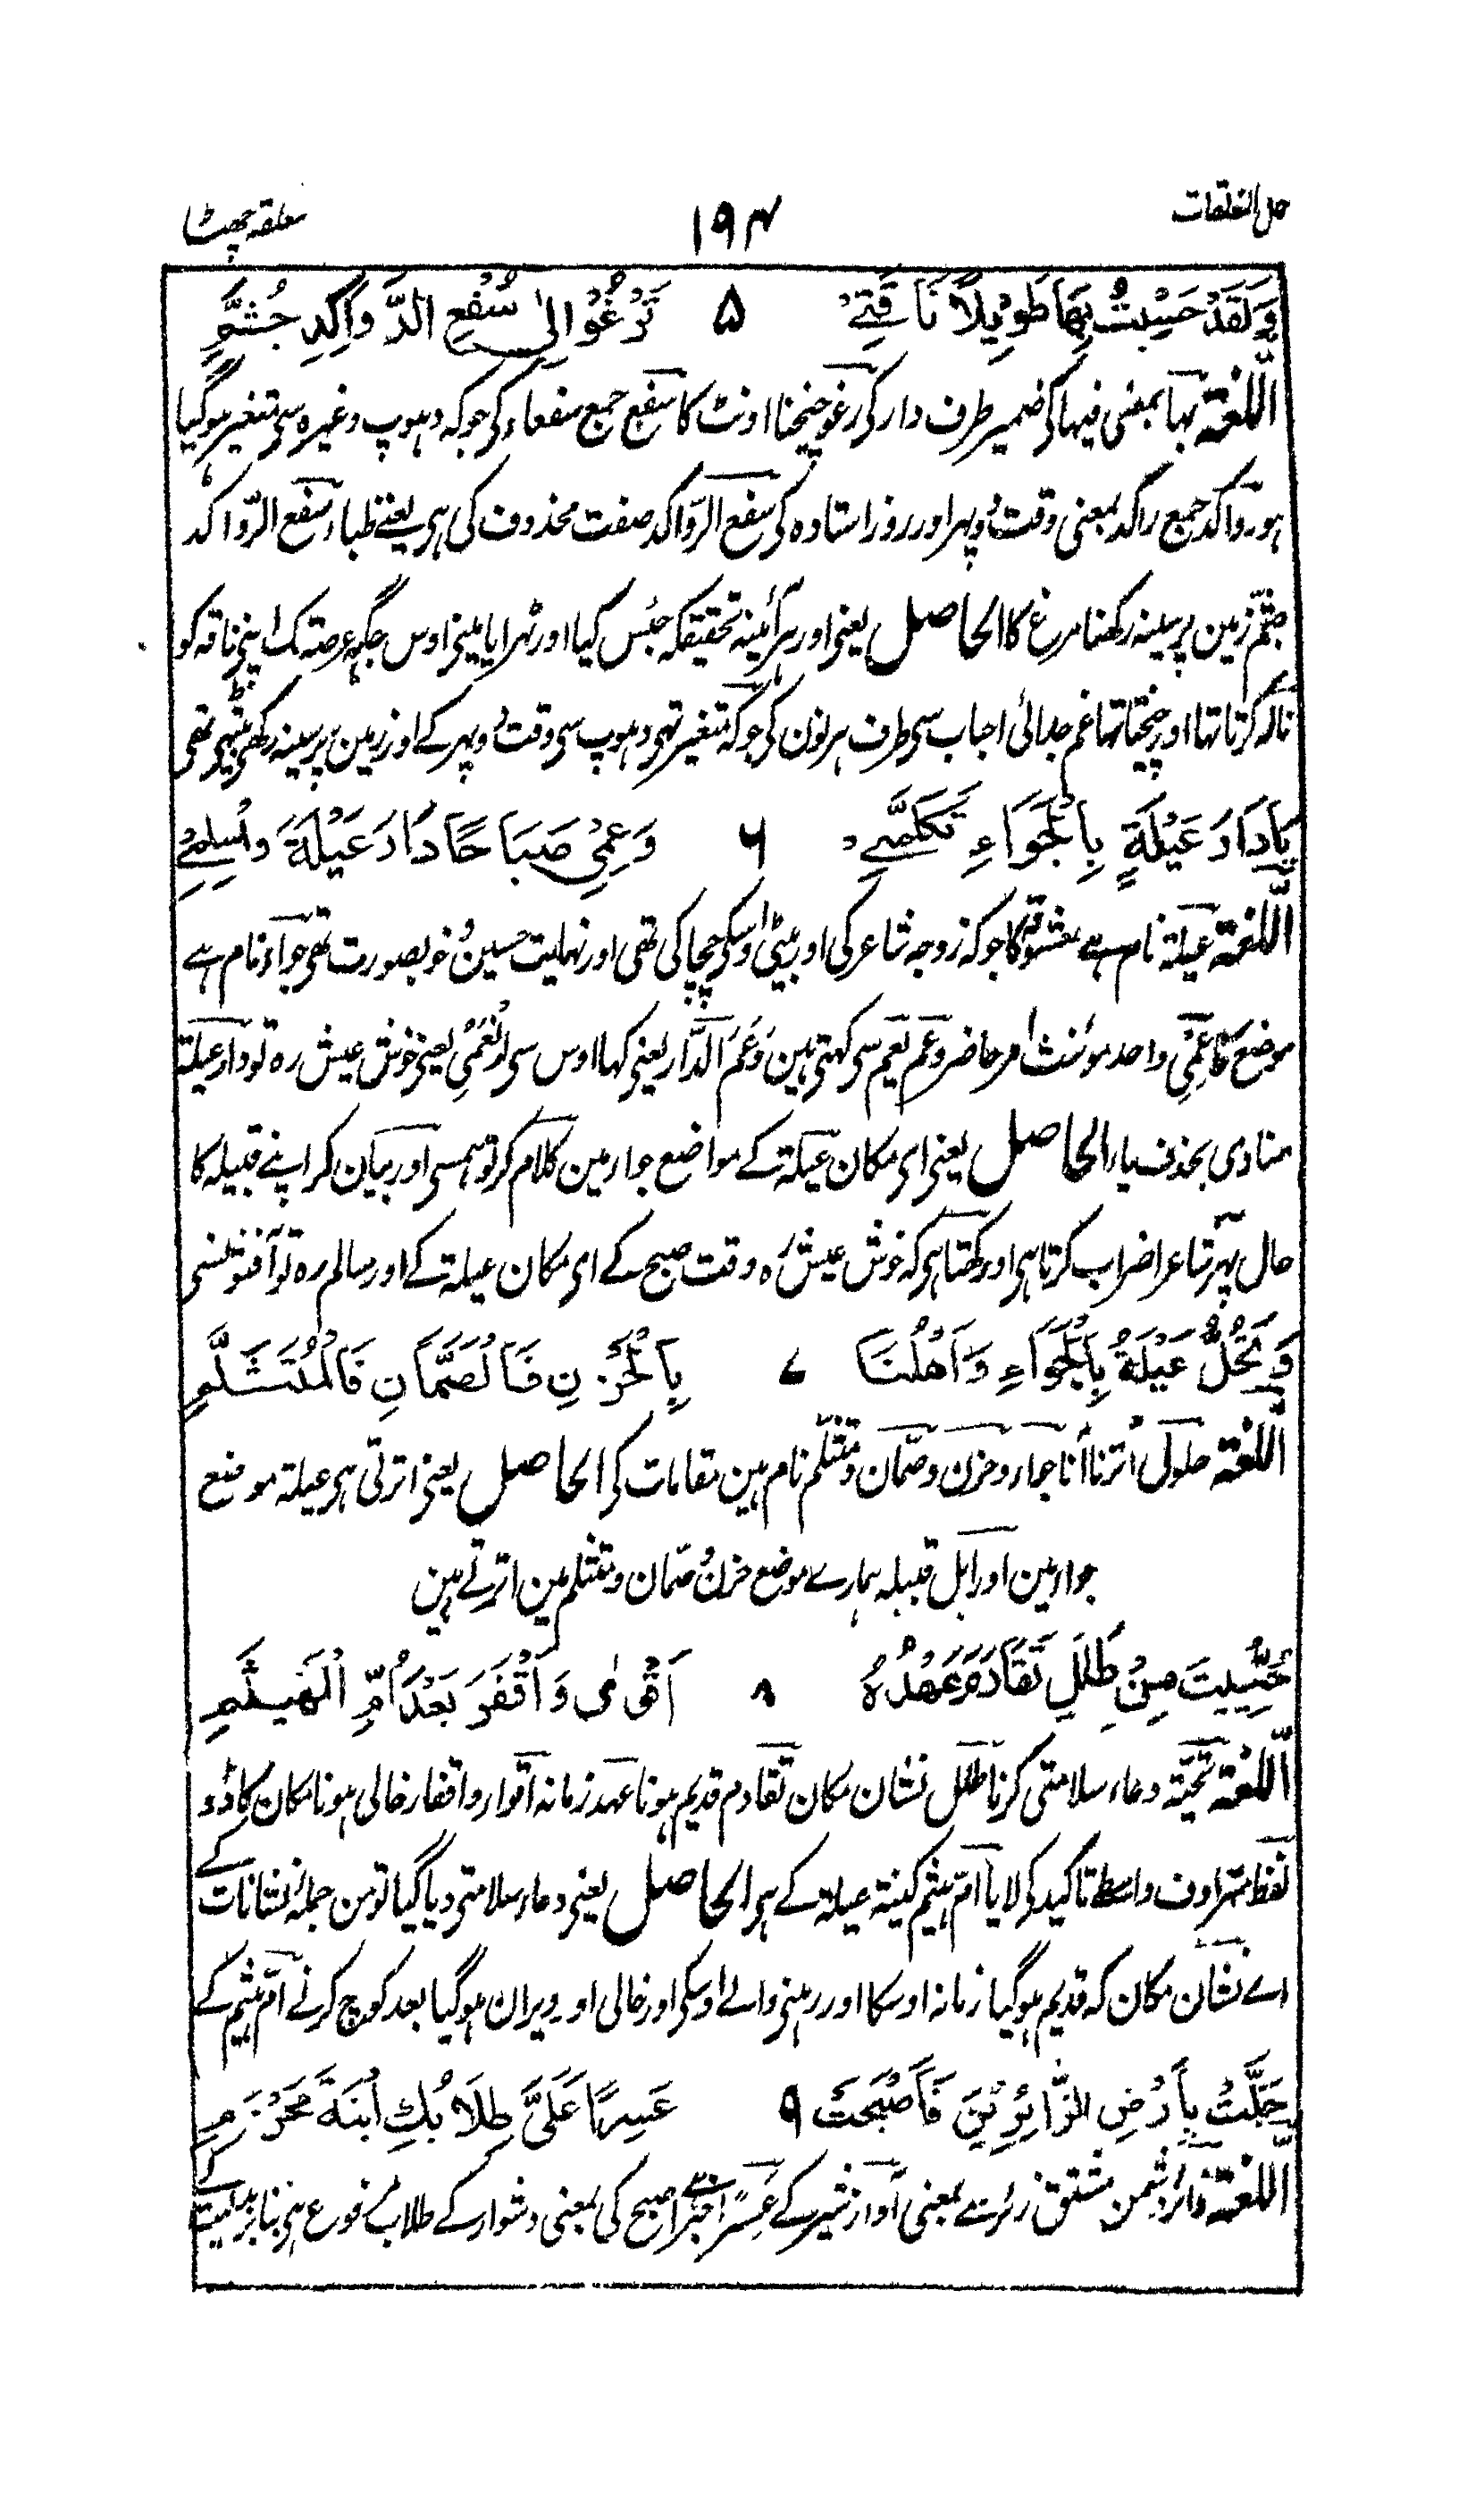 حل المعلقات ۱۹۴ معلقہ چھٹا
وَلَقَدْ حَبَسْتُ بِهَا طَوِيْلًا نَاقَتِيْ ۵ تَرْغُوْ اِلٰى سُفْعِ الرَّوَاكِدِ جُثَّمِ
اللغة بہا بمعنی فیہا کی ضمیر طرف دار کی رغو چیخنا اونٹ کا سفع جمع سفعاء کی جو کہ دہوپ وغیرہ سی متغیر ہو گیا
ہو رواکد جمع راکد بمعنی وقت دوپہر اور روز استادہ کی سفع الرواکد صفت محذوف کی ہی یعنے ظباء سفع الرواکد
جثم زمین پر سینہ رکھنا مرغ کا الحاصل یعنی اور ہر آئینہ تحقیقکہ حبس کیا اور ٹہرایا مینی اوس جگہ عرصہ تک اپنی ناقہ کو
نالہ کرتا تہا اور چیختا تہا غم جدائی احباب سی طرف ہرنون کی جو کہ متغیر تہی دہوپ سی وقت دوپہر کے اور زمین پر سینہ رکھی بیٹہی تھی
يَا دَارَ عَبْلَةٍ بِالْجَوَاءِ تَكَلَّمِيْ ۶ وَعِمِيْ صَبَاحًا دَارَ عَبْلَةَ وَاسْلِمِيْ
اللغة عبلة نام ہے معشوقہ کا جو کہ زوجہ شاعر کی اور بیٹی اوسکی چچا کی تھی اور نہایت حسین و خوبصورت تھی جواء نام ہے
موضع کا عمی واحد مونث امر حاضر وعم یعم سی کہتی ہین وعم الدار یعنی کہا اوس سی انعمی یعنی خوش عیش رہ تو دار عبلة
منادی بحذف یا الحاصل یعنی ای مکان عبلة کے مواضع جواء مین کلام کر تو ہمسی اور بیان کر اپنے قبیلہ کا
حال پہر شاعر اضراب کرتا ہی اور کہتا ہی کہ خوش عیش رہ وقت صبح کے ای مکان عبلة کے اور سالم رہ تو آفتونسی
وَتَحُلُّ عَبْلَةُ بِالْجَوَاءِ وَاَهْلُنَا ۷ بِالْحَزْنِ فَالصَّمَّانِ فَالْمُتَثَلَّمِ
اللغة حلول اترنا آنا جواء و حزن و صمان و متثلم نام ہین مقامات کی الحاصل یعنی اترتی ہی عبلة موضع
جواء مین اور اہل قبیلہ ہمارے موضع حزن و صمان و متثلم مین اترتے ہین
حُيِّيْتَ مِنْ طَلَلٍ تَقَادَمَ عَهْدُهٗ ۸ اَقْوٰى وَاَقْفَرَ بَعْدَ اُمِّ الْهَيْثَمِ
اللغة تحیۃ دعاء سلامتی کرنا طلل نشان مکان تقادم قدیم ہونا عہد زمانہ اقواء واقفار خالی ہونا مکان کا دو
لفظ مترادف واسطے تاکید کے لایا ام ہیثم کنیۃ عبلة کے ہی الحاصل یعنی دعاء سلامتی دیا گیا تو من جملہ نشانات کے
اے نشان مکان کہ قدیم ہو گیا زمانہ اوسکا اور رہنی والے اوسکی اور خالی اور ویران ہو گیا بعد کوچ کرنے ام ہیثم کے
حَلَّتْ بِاَرْضِ الزَّائِرِيْنَ فَاَصْبَحَتْ ۹ عَسِرًا عَلَيَّ طِلَابُكِ ابْنَةَ مَخْرَمِ
اللغة زائر دشمن مشتق زئر سے بمعنی آواز شیر کے عسرا خبر اصبح کی بمعنی دشوار کے طلاب مرفوع ہی بنابر